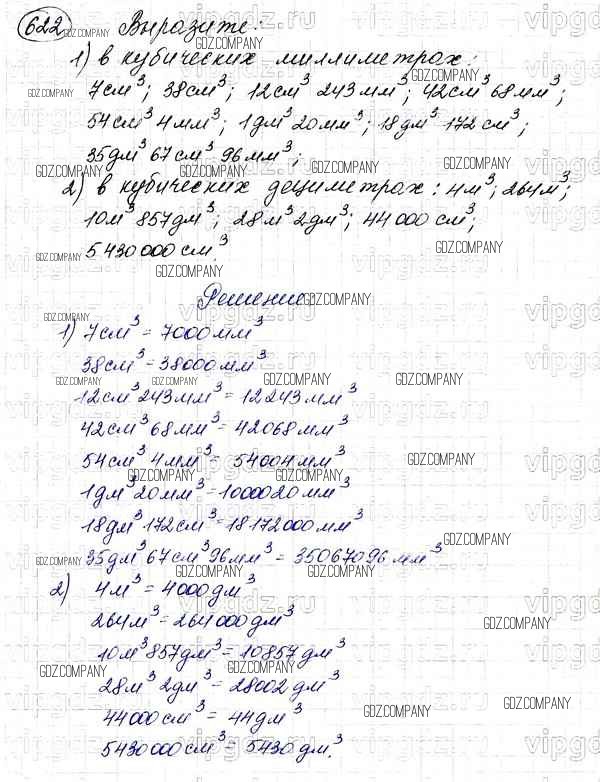 622 Выразите:
1) в кубических миллиметрах:
7см³; 38см³; 12см³ 243мм³; 42см³ 68мм³;
54см³ 4мм³; 1дм³ 20мм³; 18дм³ 172см³;
35дм³ 67см³ 96мм³;
2) в кубических дециметрах: 4м³; 264м³;
10м³ 857дм³; 28м³ 2дм³; 44000см³;
5430000см³.
Решение:
1) 7см³ = 7000мм³
38см³ = 38000мм³
12см³ 243мм³ = 12243мм³
42см³ 68мм³ = 42068мм³
54см³ 4мм³ = 54004мм³
1дм³ 20мм³ = 1000020мм³
18дм³ 172см³ = 18172000мм³
35дм³ 67см³ 96мм³ = 35067096мм³
2) 4м³ = 4000дм³
264м³ = 264000дм³
10м³ 857дм³ = 10857дм³
28м³ 2дм³ = 28002дм³
44000см³ = 44дм³
5430000см³ = 5430дм³.